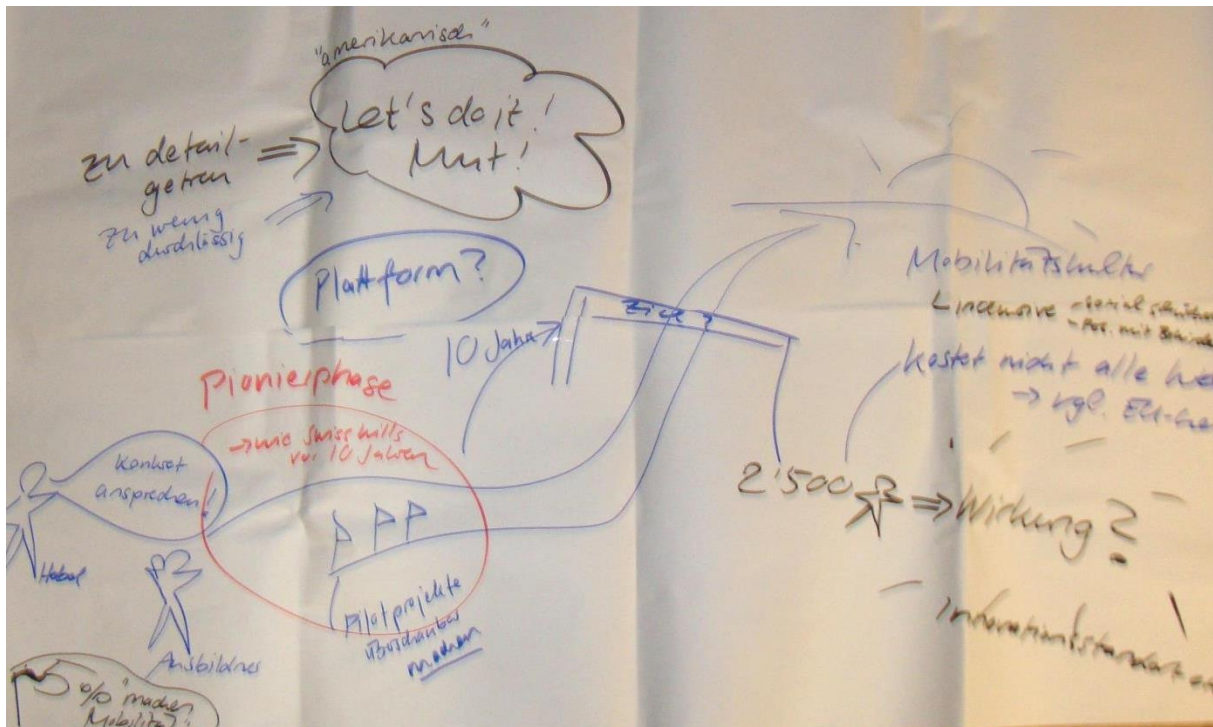 "amerikanisch"
Let's do it!
Mut!
zu detail-
getreu
zu wenig
durchlässig
Plattform?
10 Jahre
Ziel?
Pionierphase
→ wie Swiss Skills
vor 10 Jahren
Konkret
ansprechen!
Ausbildner
Pilotprojekte
überschaubar
machen
5 % "machen
Mobilität"
Mobilitätskultur
Kostet nicht alle
→ vgl. EU-
2'500 ⇒ Wirkung?
Innovationsstandort